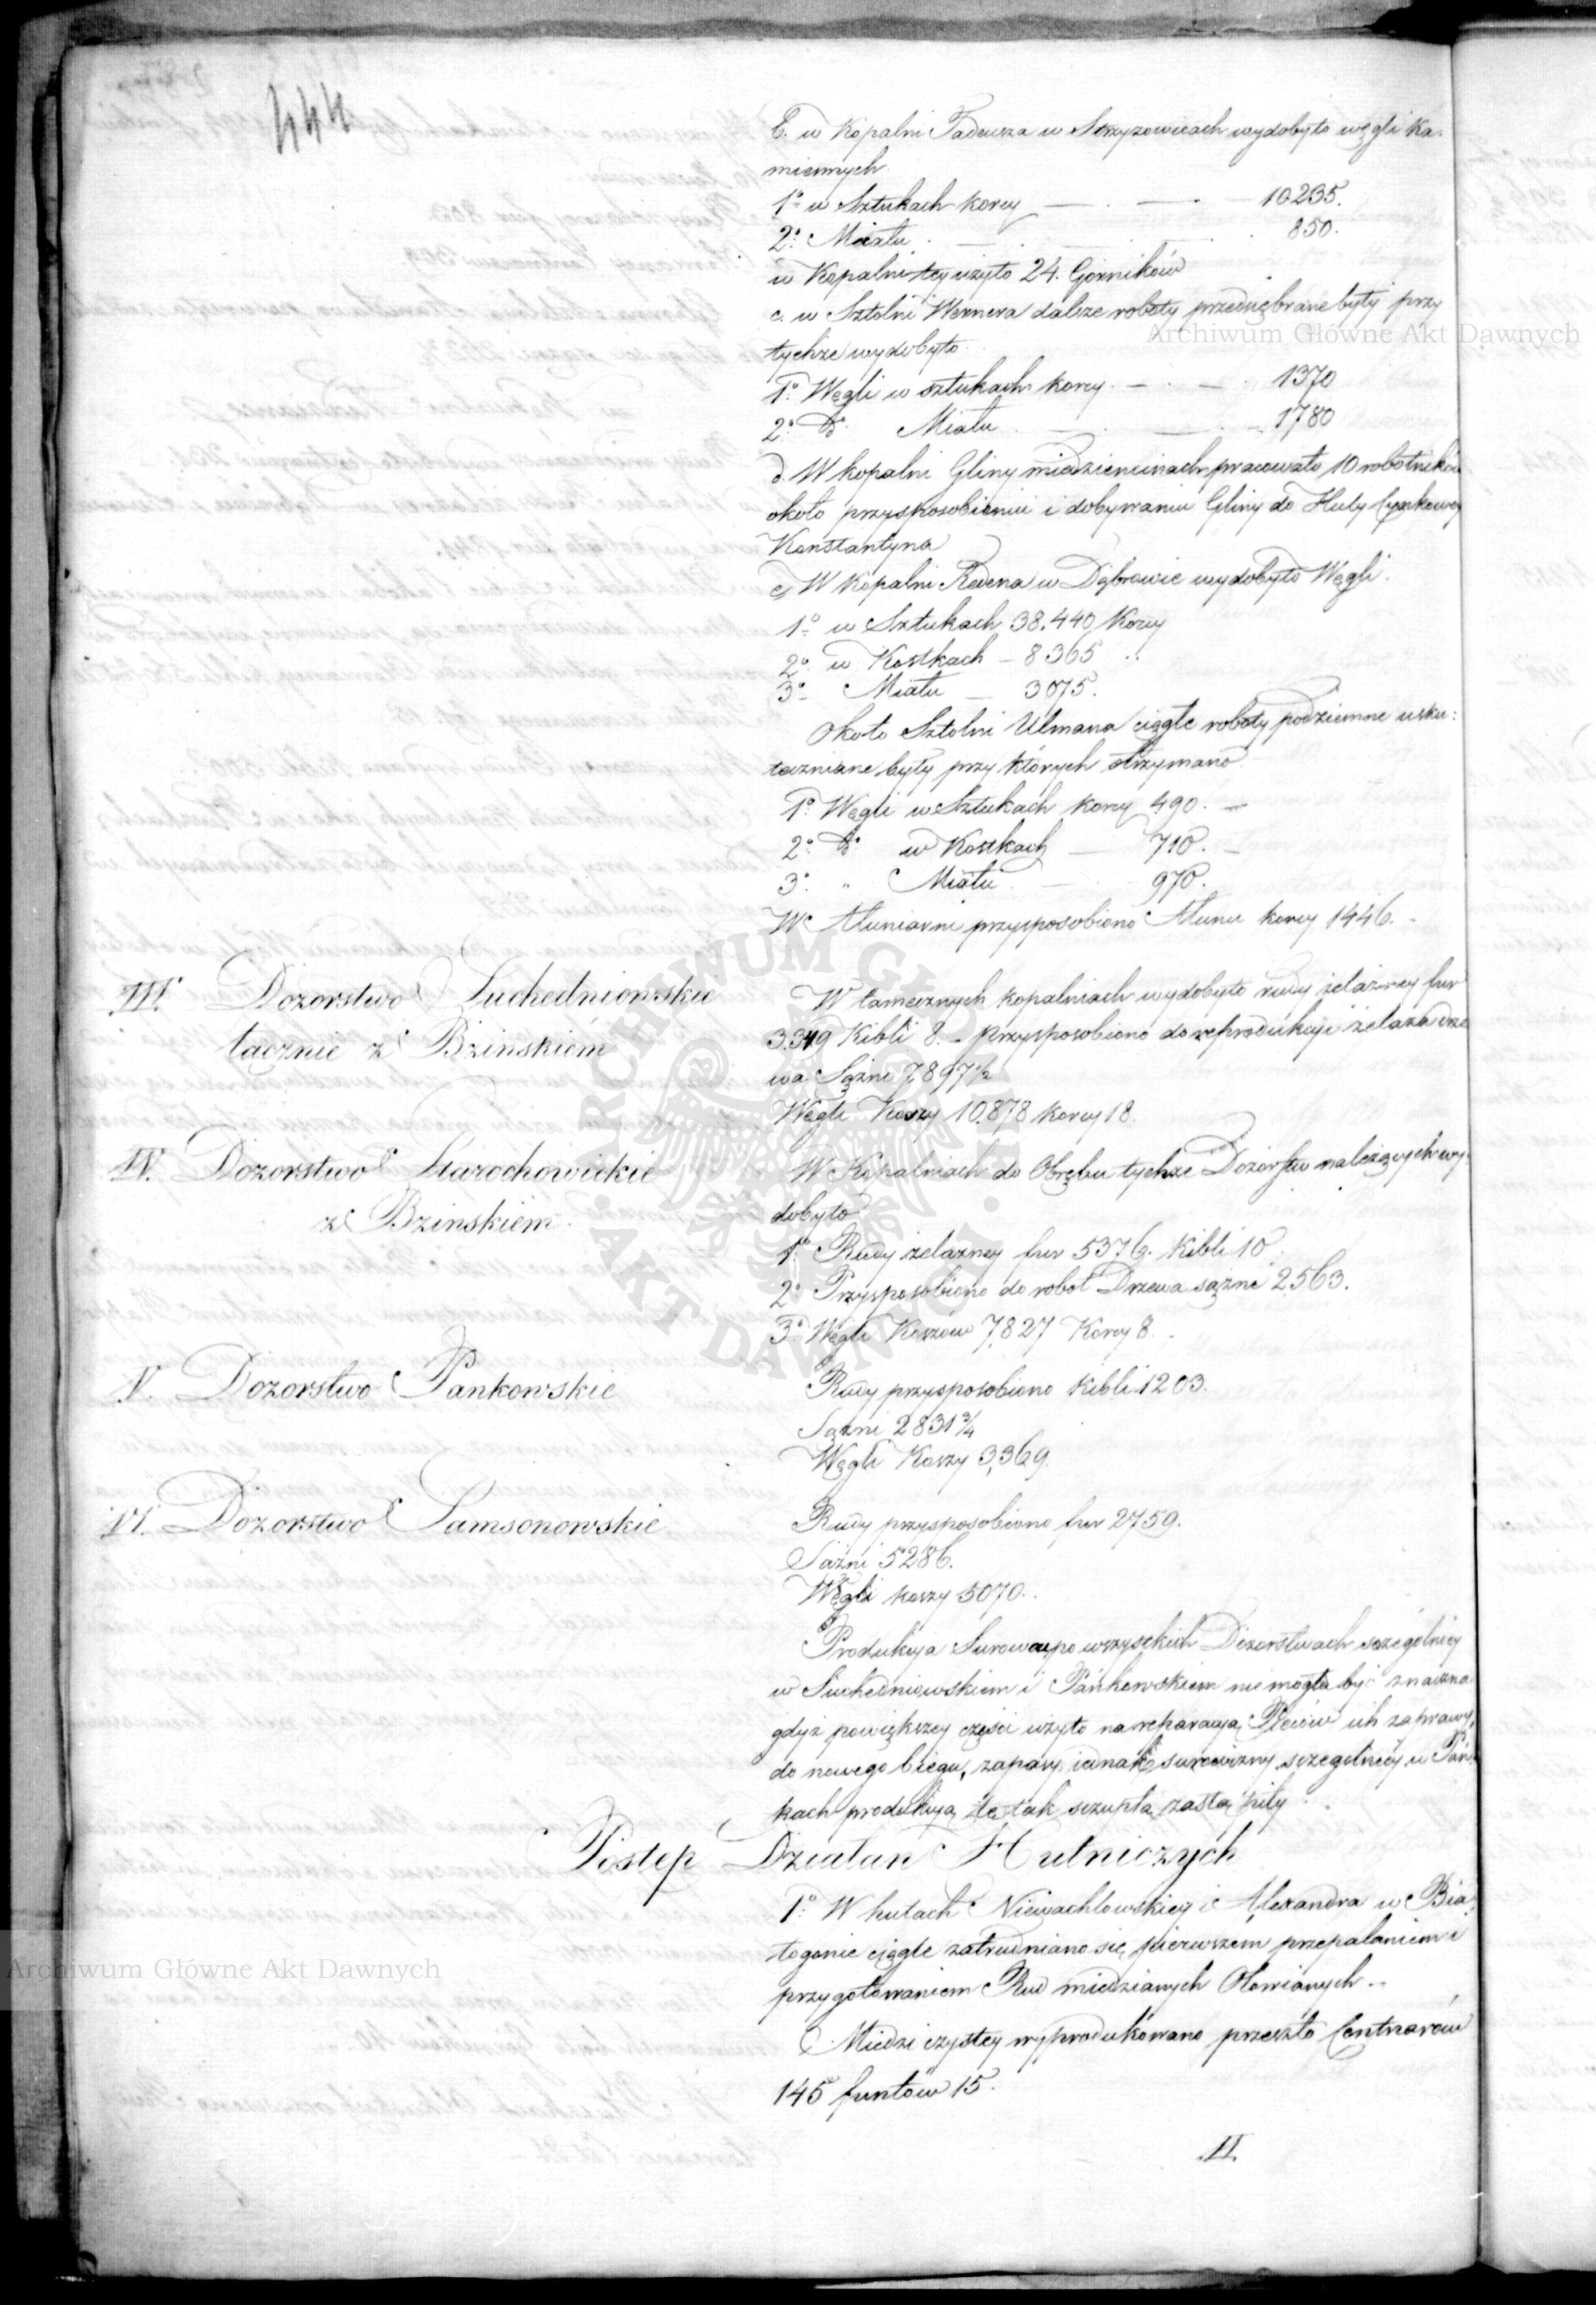 444
b. w Kopalni Tadeusza w Strzyzowicach wydobyto węgli ka-
miennych.
1º w Sztukach korcy 10235.
2º Miału 850.
w Kopalni tey użyto 24. Górników
c. w Sztolni Wernera dalsze roboty przedsiębrane były przy
tychże wydobyto.
1º Węgli w sztukach korcy 1370
2º dº Miału 1780
d. W kopalni Gliny pracowało 10 robotników
około przysposobieniu i dobywaniu Gliny do Huty Cynkowey
Konstantyna
e, W Kopalni Redena w Dąbrowie wydobyto Węgli.
1º w Sztukach 38.440 Korcy
2º w Kostkach – 8365 "
3º Miału – 3075.
Około Sztolni Ulmana ciągłe roboty podziemne usku:
teczniane były przy których otrzymano.
1º Węgli w Sztukach korcy 490. –
2º dº w Kostkach – 710. –
3º " Miału 970.
W Ałuniarni przysposobiono Ałunu korcy 1446. –
III. Dozorstwo Suchedniowskie
łącznie z Bzinskiém
W tamecznych kopalniach wydobyto rudy żelazney fur
3349 Kibli 8. – Przysposobiono do reprodukcyi żelaza drze
wa Sążni 7,897½
Węgli Koszy 10,878 korcy 18.
IV. Dozorstwo Starochowickie
z Bzinskiém.
W Kopalniach do Obrębu tychże Dozorstw należących wy-
dobyto
1º Rudy żelazney fur 5376. Kibli 10
2º Przysposobiono do robot Drzewa sążni 2563.
3º Węgli Koszow 7,827 Korcy 8. –
V. Dozorstwo Pankowskie
Rudy przysposobiono Kibli 1203.
Sążni 2831¾
Węgli Koszy 3,369.
VI. Dozorstwo Samsonowskie
Rudy przysposobiono fur 2759.
Sążni 5286.
Węgli koszy 5070.
Produkcya Surowcu po wszystkich Dozorstwach szczególniey
w Suchedniowskiem i Pánkowskiem nie mogła być znaczna
gdyż powiększey części użyto na reparacyą Pieców ich zaprawy
do nowego biegu, zapasy jednak surowizny szczególniey w Pán-
kach produkcyą tę tak szczupłą zastąpiły.
Postęp Działan Hutniczych
1º W hutach Niewachlowskiey i Alexandra w Bia-
łogonie ciągle zatrudniano się pierwszem przepalaniem i
przygotowaniem Rud miedzianych Ołowianych. –
Miedzi czystey wyprodukowano przeszło Centnarów
145 funtów 15.
II.
Archiwum Główne Akt Dawnych
Archiwum Główne Akt Dawnych
ARCHIWUM GŁÓWNE AKT DAWNYCH